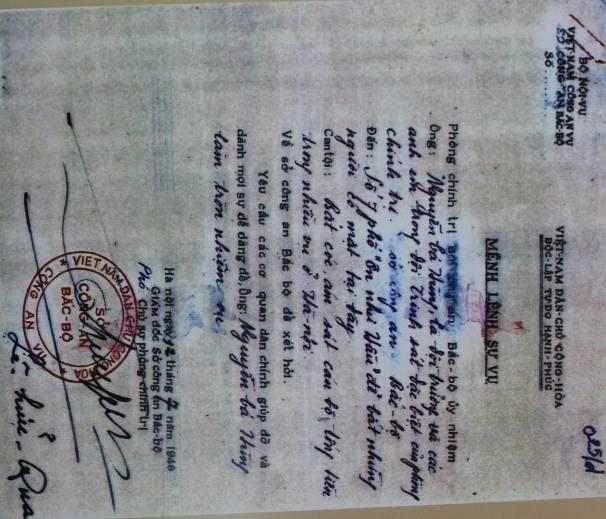 BỘ NỘI-VỤ
VIỆT-NAM CÔNG AN VỤ
SỞ CÔNG-AN BẮC-BỘ
SỐ........
VIỆT-NAM DÂN-CHỦ CỘNG-HÒA
ĐỘC-LẬP TỰ-DO HẠNH-PHÚC
MỆNH LỆNH SỰ VỤ
Phòng chính trị Sở công an Bắc-bộ ủy nhiệm
Ông: Nguyễn bá Hùng, là đội trưởng và các
anh em trong đội Trinh sát đặc biệt của phòng
chính trị. sở công an Bắc-bộ
Đến: Số 7 phố Ôn như Hầu để bắt những
người có mặt tại đây
Can tội: Bắt cóc ám sát cán bộ, tống tiền
trong nhiều vụ ở Hà-nội.
Về sở công an Bắc bộ để xét hỏi.
Yêu cầu các cơ quan dân chính giúp đỡ và
dành mọi sự dễ dàng để, Ông: Nguyễn bá Hùng
làm tròn nhiệm vụ.
Hà nội ngày 12 tháng 7 năm 1946
Giám đốc Sở công an Bắc-bộ
Phó Chủ sự phòng chính trị
VIỆT NAM DÂN CHỦ CỘNG HÒA
CÔNG AN VỤ
SỞ
CÔNG-AN
BẮC-BỘ